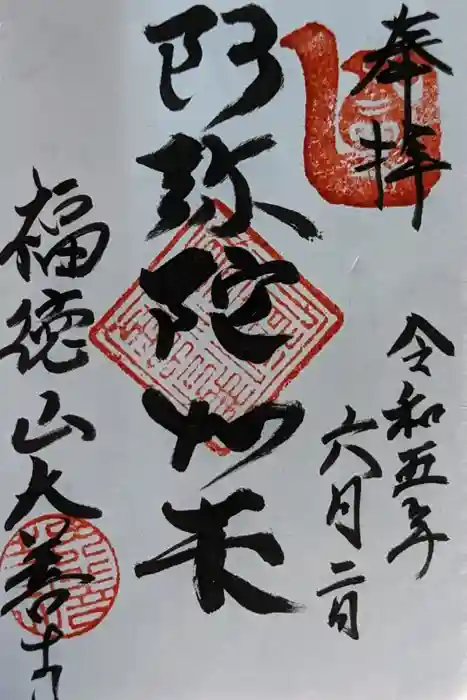 奉拝
令和五年
六月二日
阿弥陀如来
福徳山大善寺